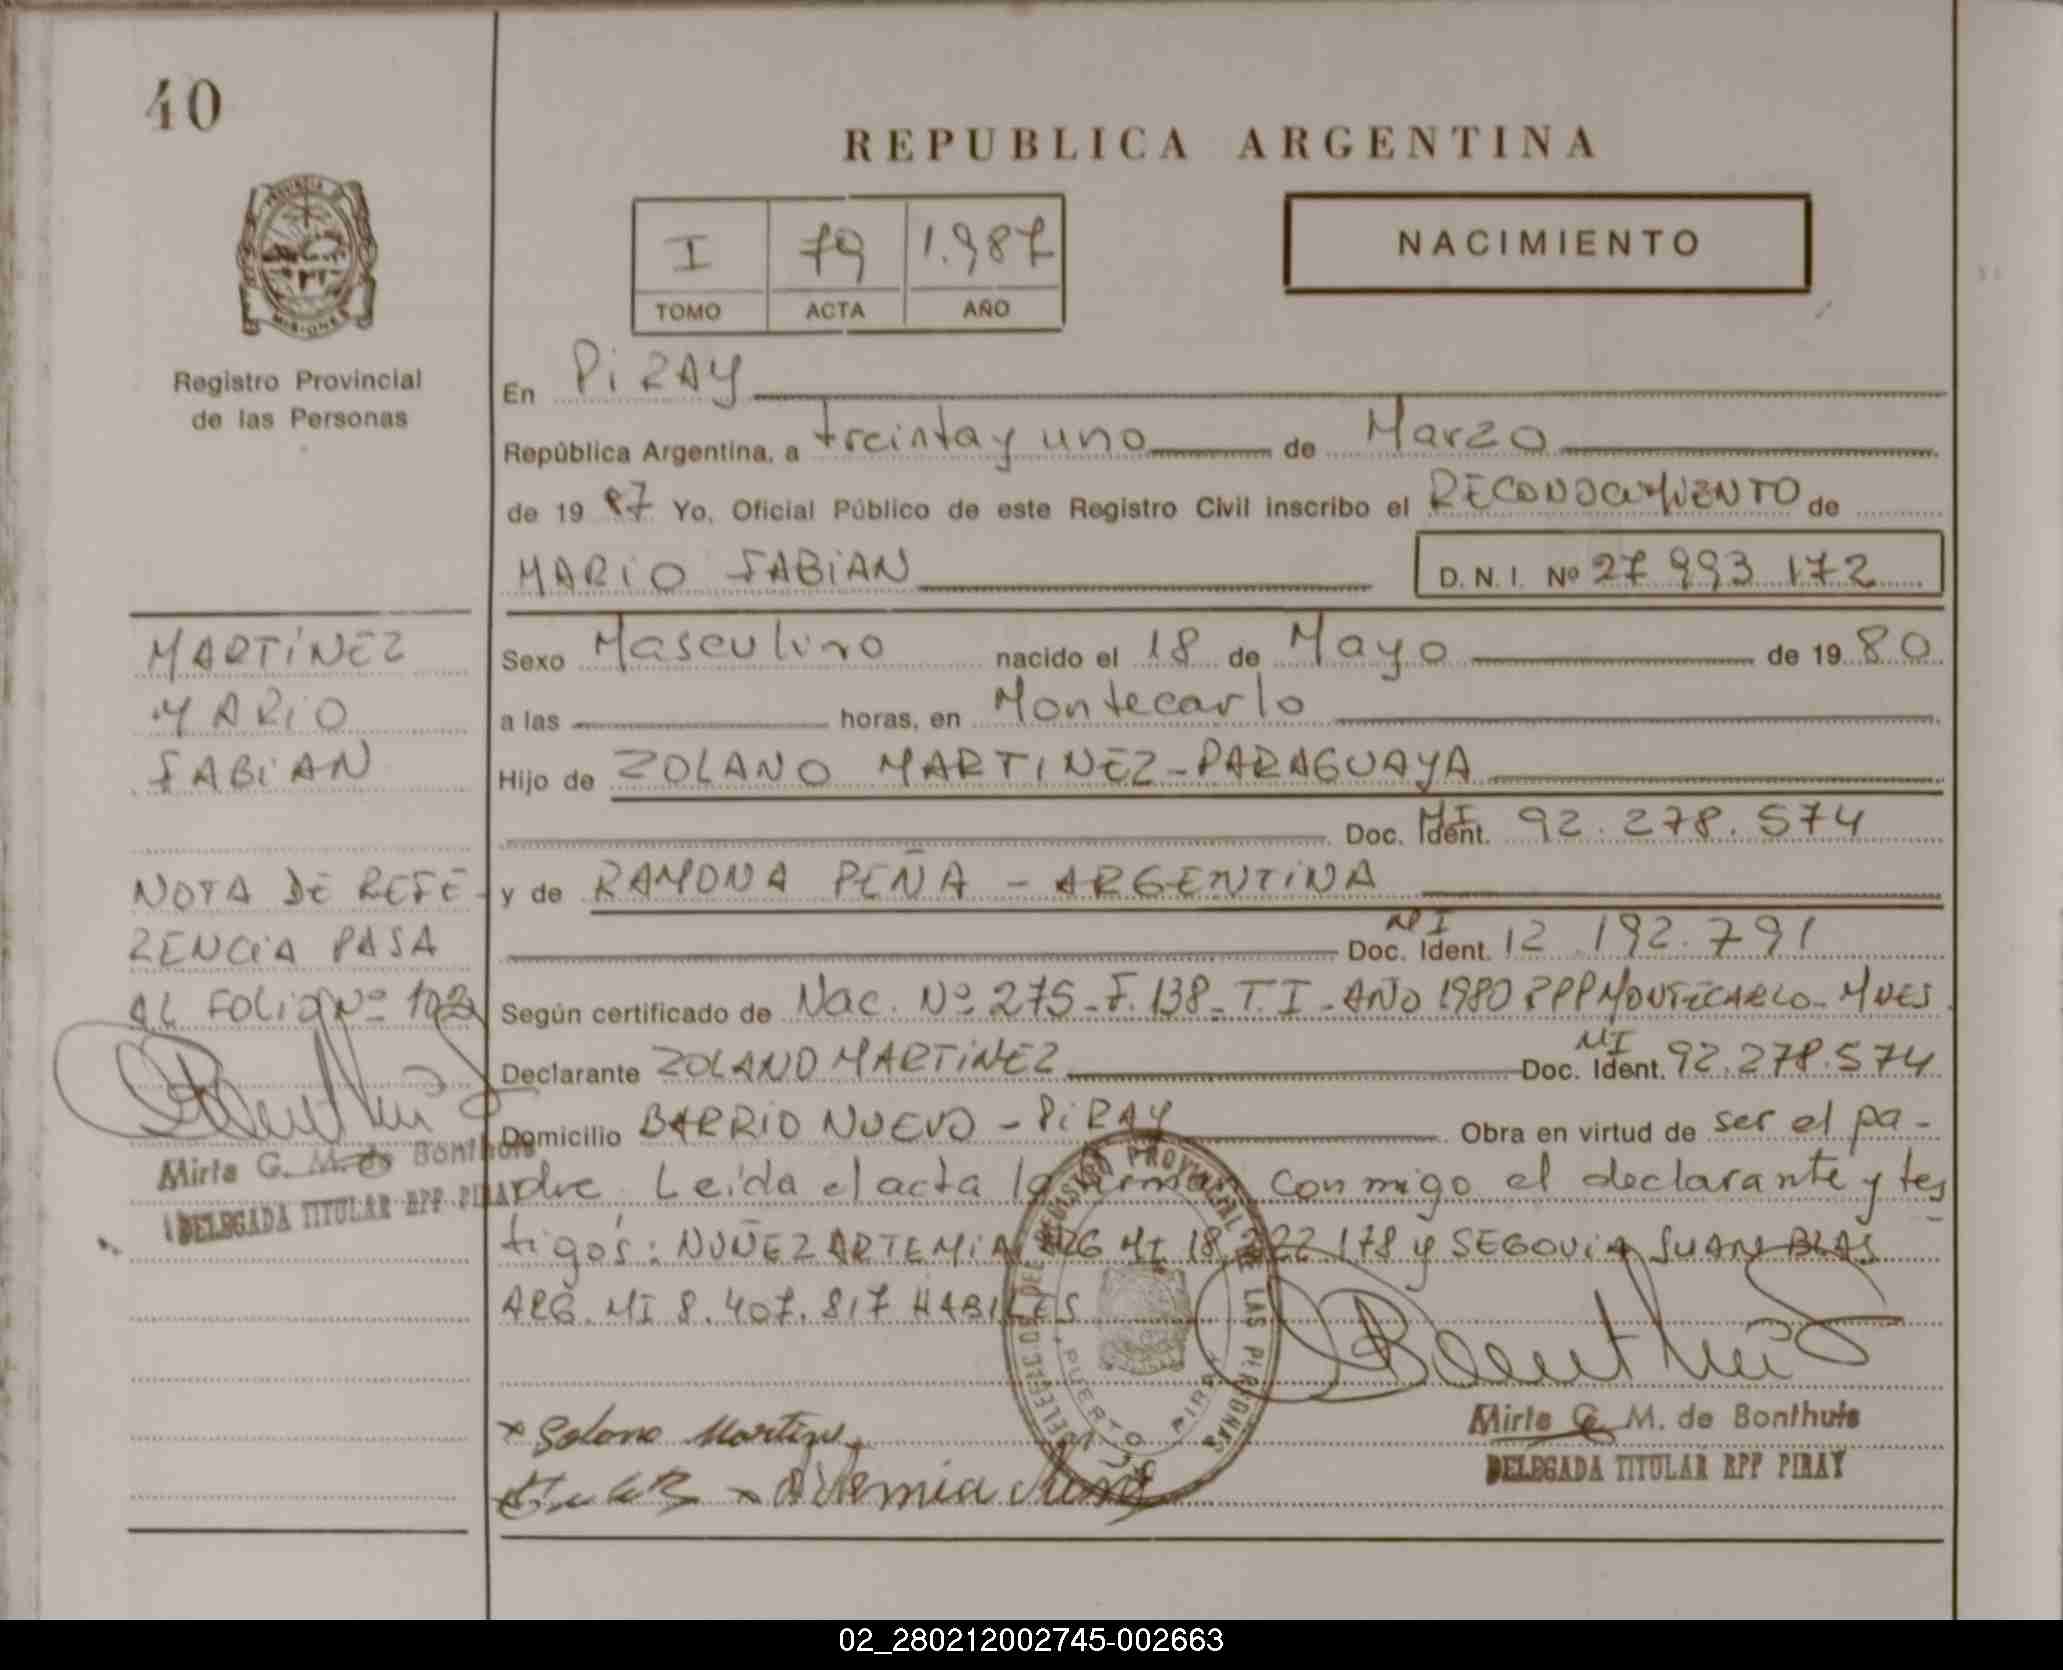 40
REPUBLICA ARGENTINA
I 79 1.987
TOMO ACTA AÑO
NACIMIENTO
MISIONES
Registro Provincial
de las Personas
En PiRAY
República Argentina, a treinta y uno de Marzo
de 19 87 Yo, Oficial Público de este Registro Civil inscribo el RECONOCIMIENTO de
MARiO FABiAN D. N. I. Nº 27 993 172
MARTíNEZ
MARiO
FABiAN
Sexo Masculino nacido el 18 de Mayo de 19 80
a las horas, en Montecarlo
Hijo de ZOLANO MARTINEZ - PARAGUAYA
Doc. Ident. MI 92.278.574
y de RAMONA PEÑA - ARGENTINA
Doc. Ident. MI 12.192.791
NOTA DE REFE-
RENCiA PASA
AL FOLIO Nº 102
Según certificado de Nac. Nº 275-F.138-T.I-AÑO 1980 RPP MONTECARLO-MNES.
Declarante ZOLANO MARTiNEZ Doc. Ident. MI 92.278.574
Domicilio BARRIO NUEVO - PiRAY Obra en virtud de ser el pa-
dre. Leída el acta la firman conmigo el declarante y tes
tigos: NUÑEZ ARTEMIA ARG MI 18.222.178 y SEGOVIA JUAN BLAS
ARG. MI 8.407.817 HABILES
Mirta G. M. de Bonthuis
DELEGADA TITULAR RPP PIRAY
DELEGACION DEL REGISTRO PROVINCIAL DE LAS PERSONAS
PUERTO PIRAY
Solano Martinez
Artemia Nuñez
Mirta G. M. de Bonthuis
DELEGADA TITULAR RPP PIRAY
02_280212002745-002663